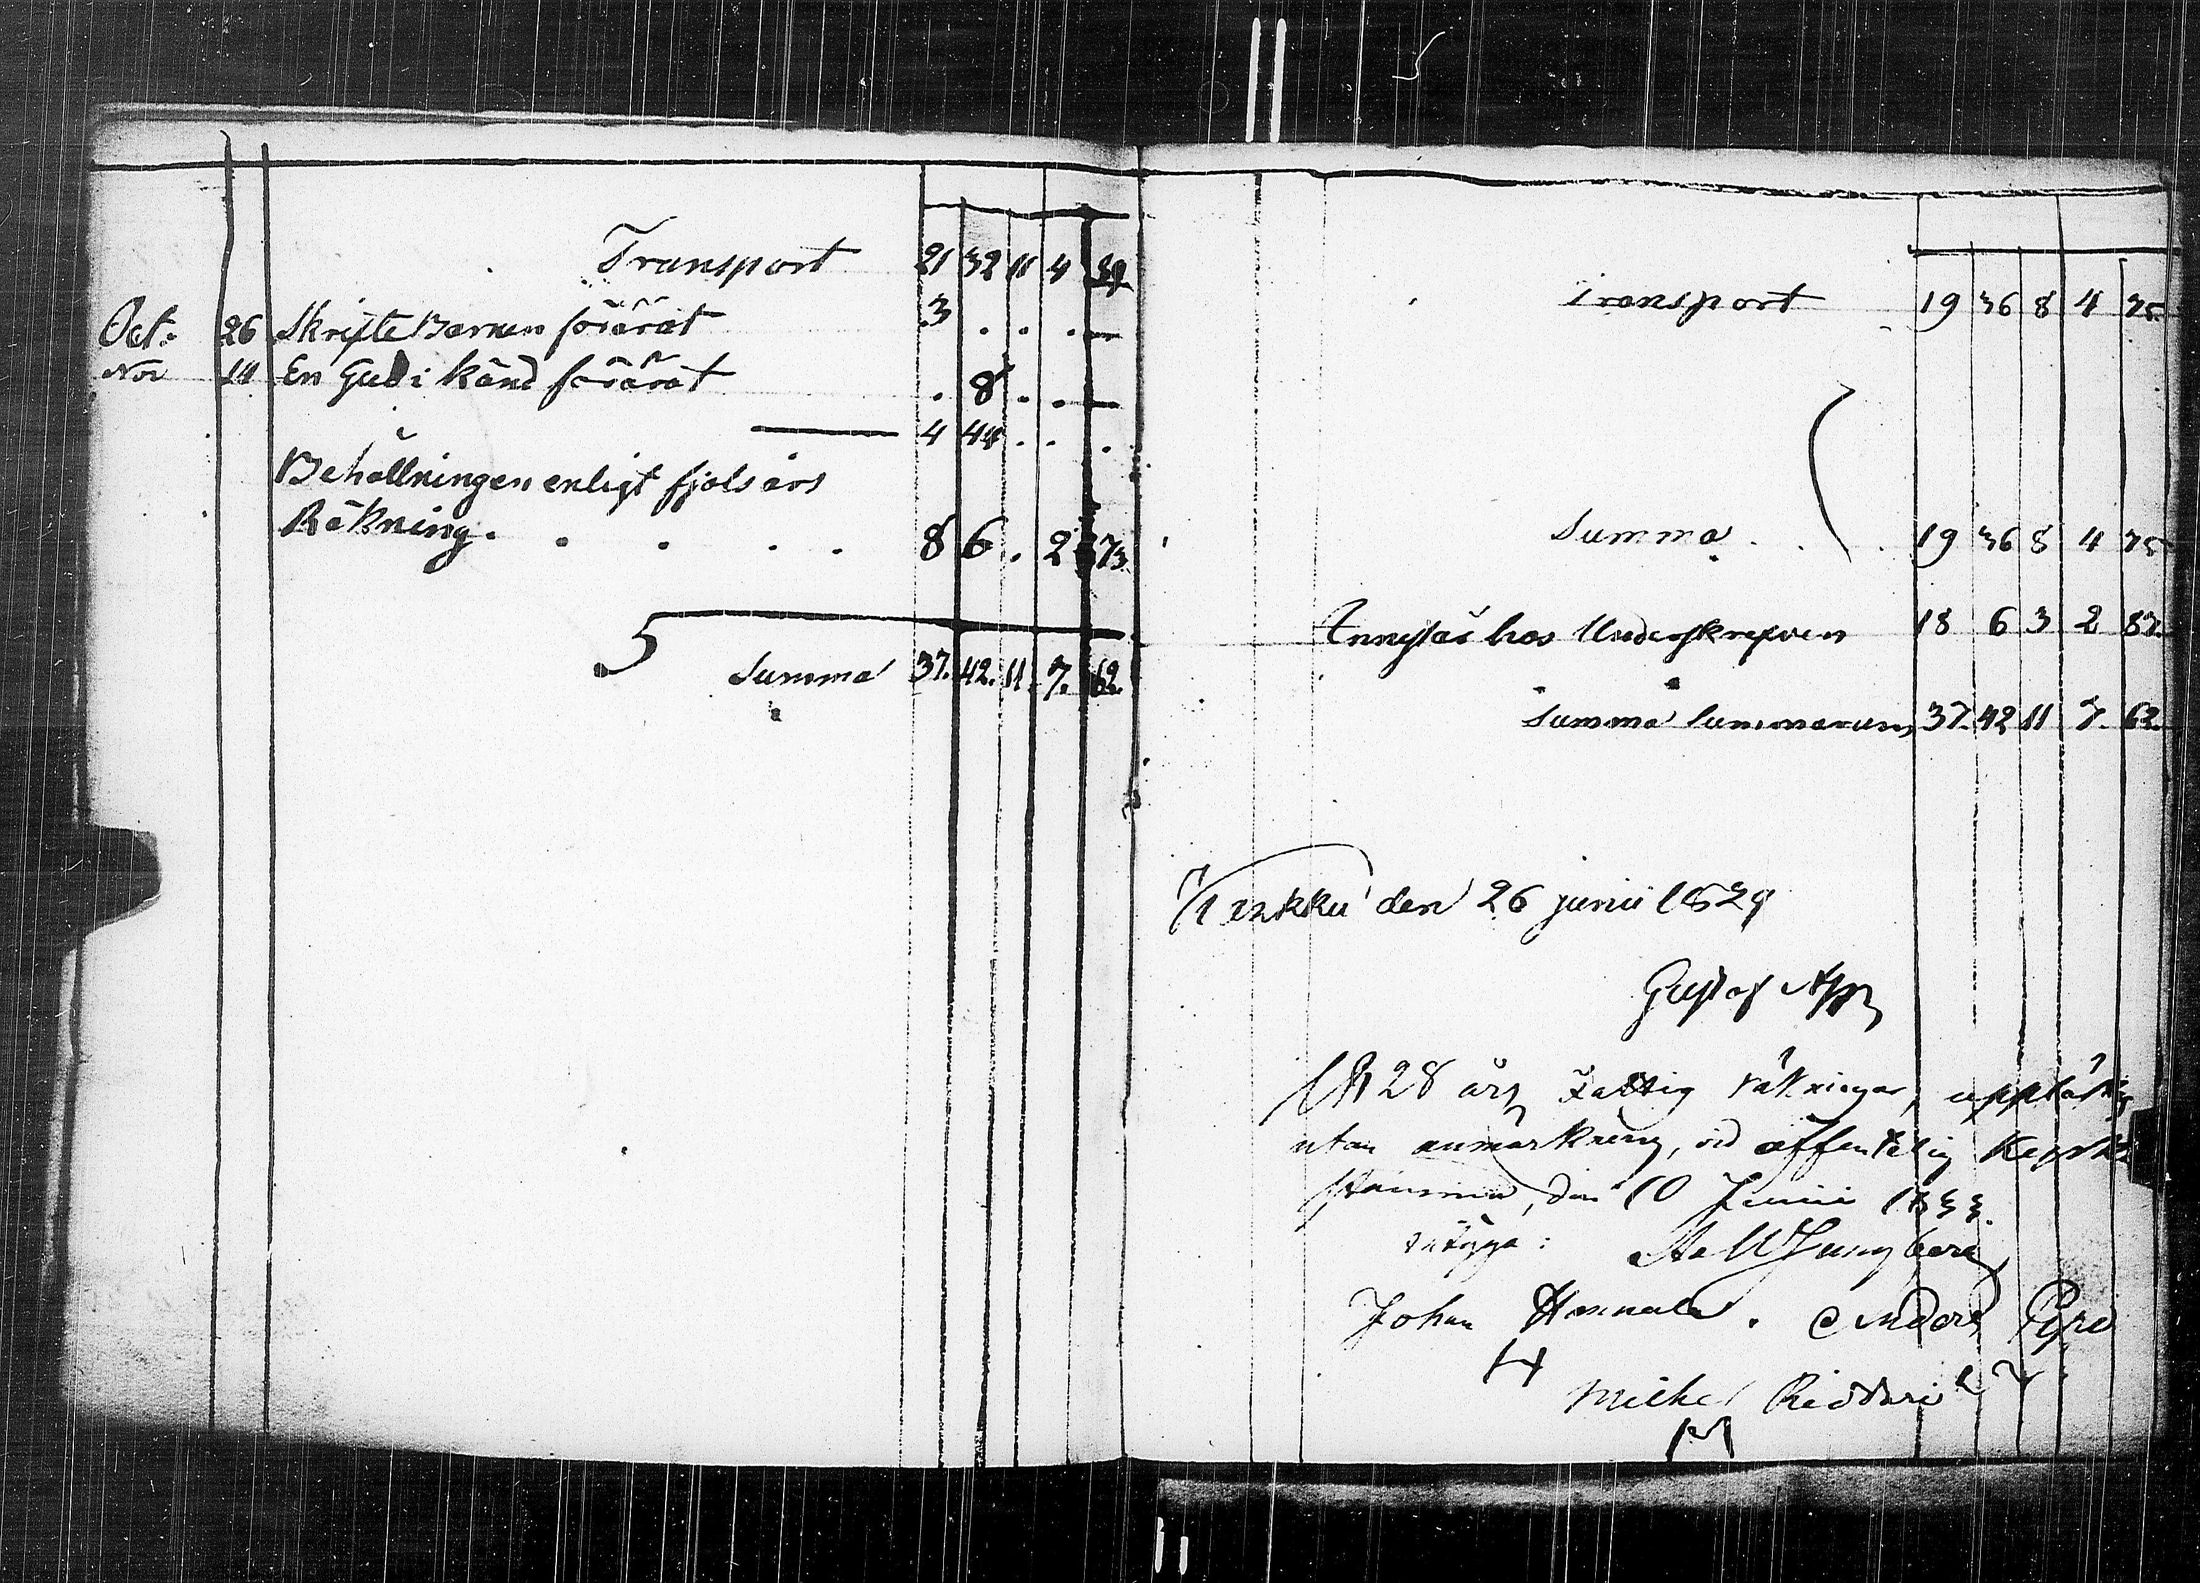 Transport 21 32 11 4 89
Oct. 26 Skrifte Barnen förärat 3 . . . —
Nov 14 En Gud i känd förärat . 8 . . —
— 4 44 . . .
Behållningen enligt fjols års
Räkning . . . . . 8 6 . 2 73
Summa 37. 42. 11. 7. 62.
Transport 19 36 8 4 75
Summa . . . 19 36 8 4 75
Innestår hos Underskrefven 18 6 3 2 87.
Summa Summarum 37. 42 11 7. 62.
den 26 junii 1829
Gustaf
1828 års Fattig räkningar, upplästs
utan anmärkning, vid offentelig
Stämma, den 10 Junii 1833.
intyga: Ljungberg
Johan Hannula. Anders Pyro
H
Michel Riddari
M